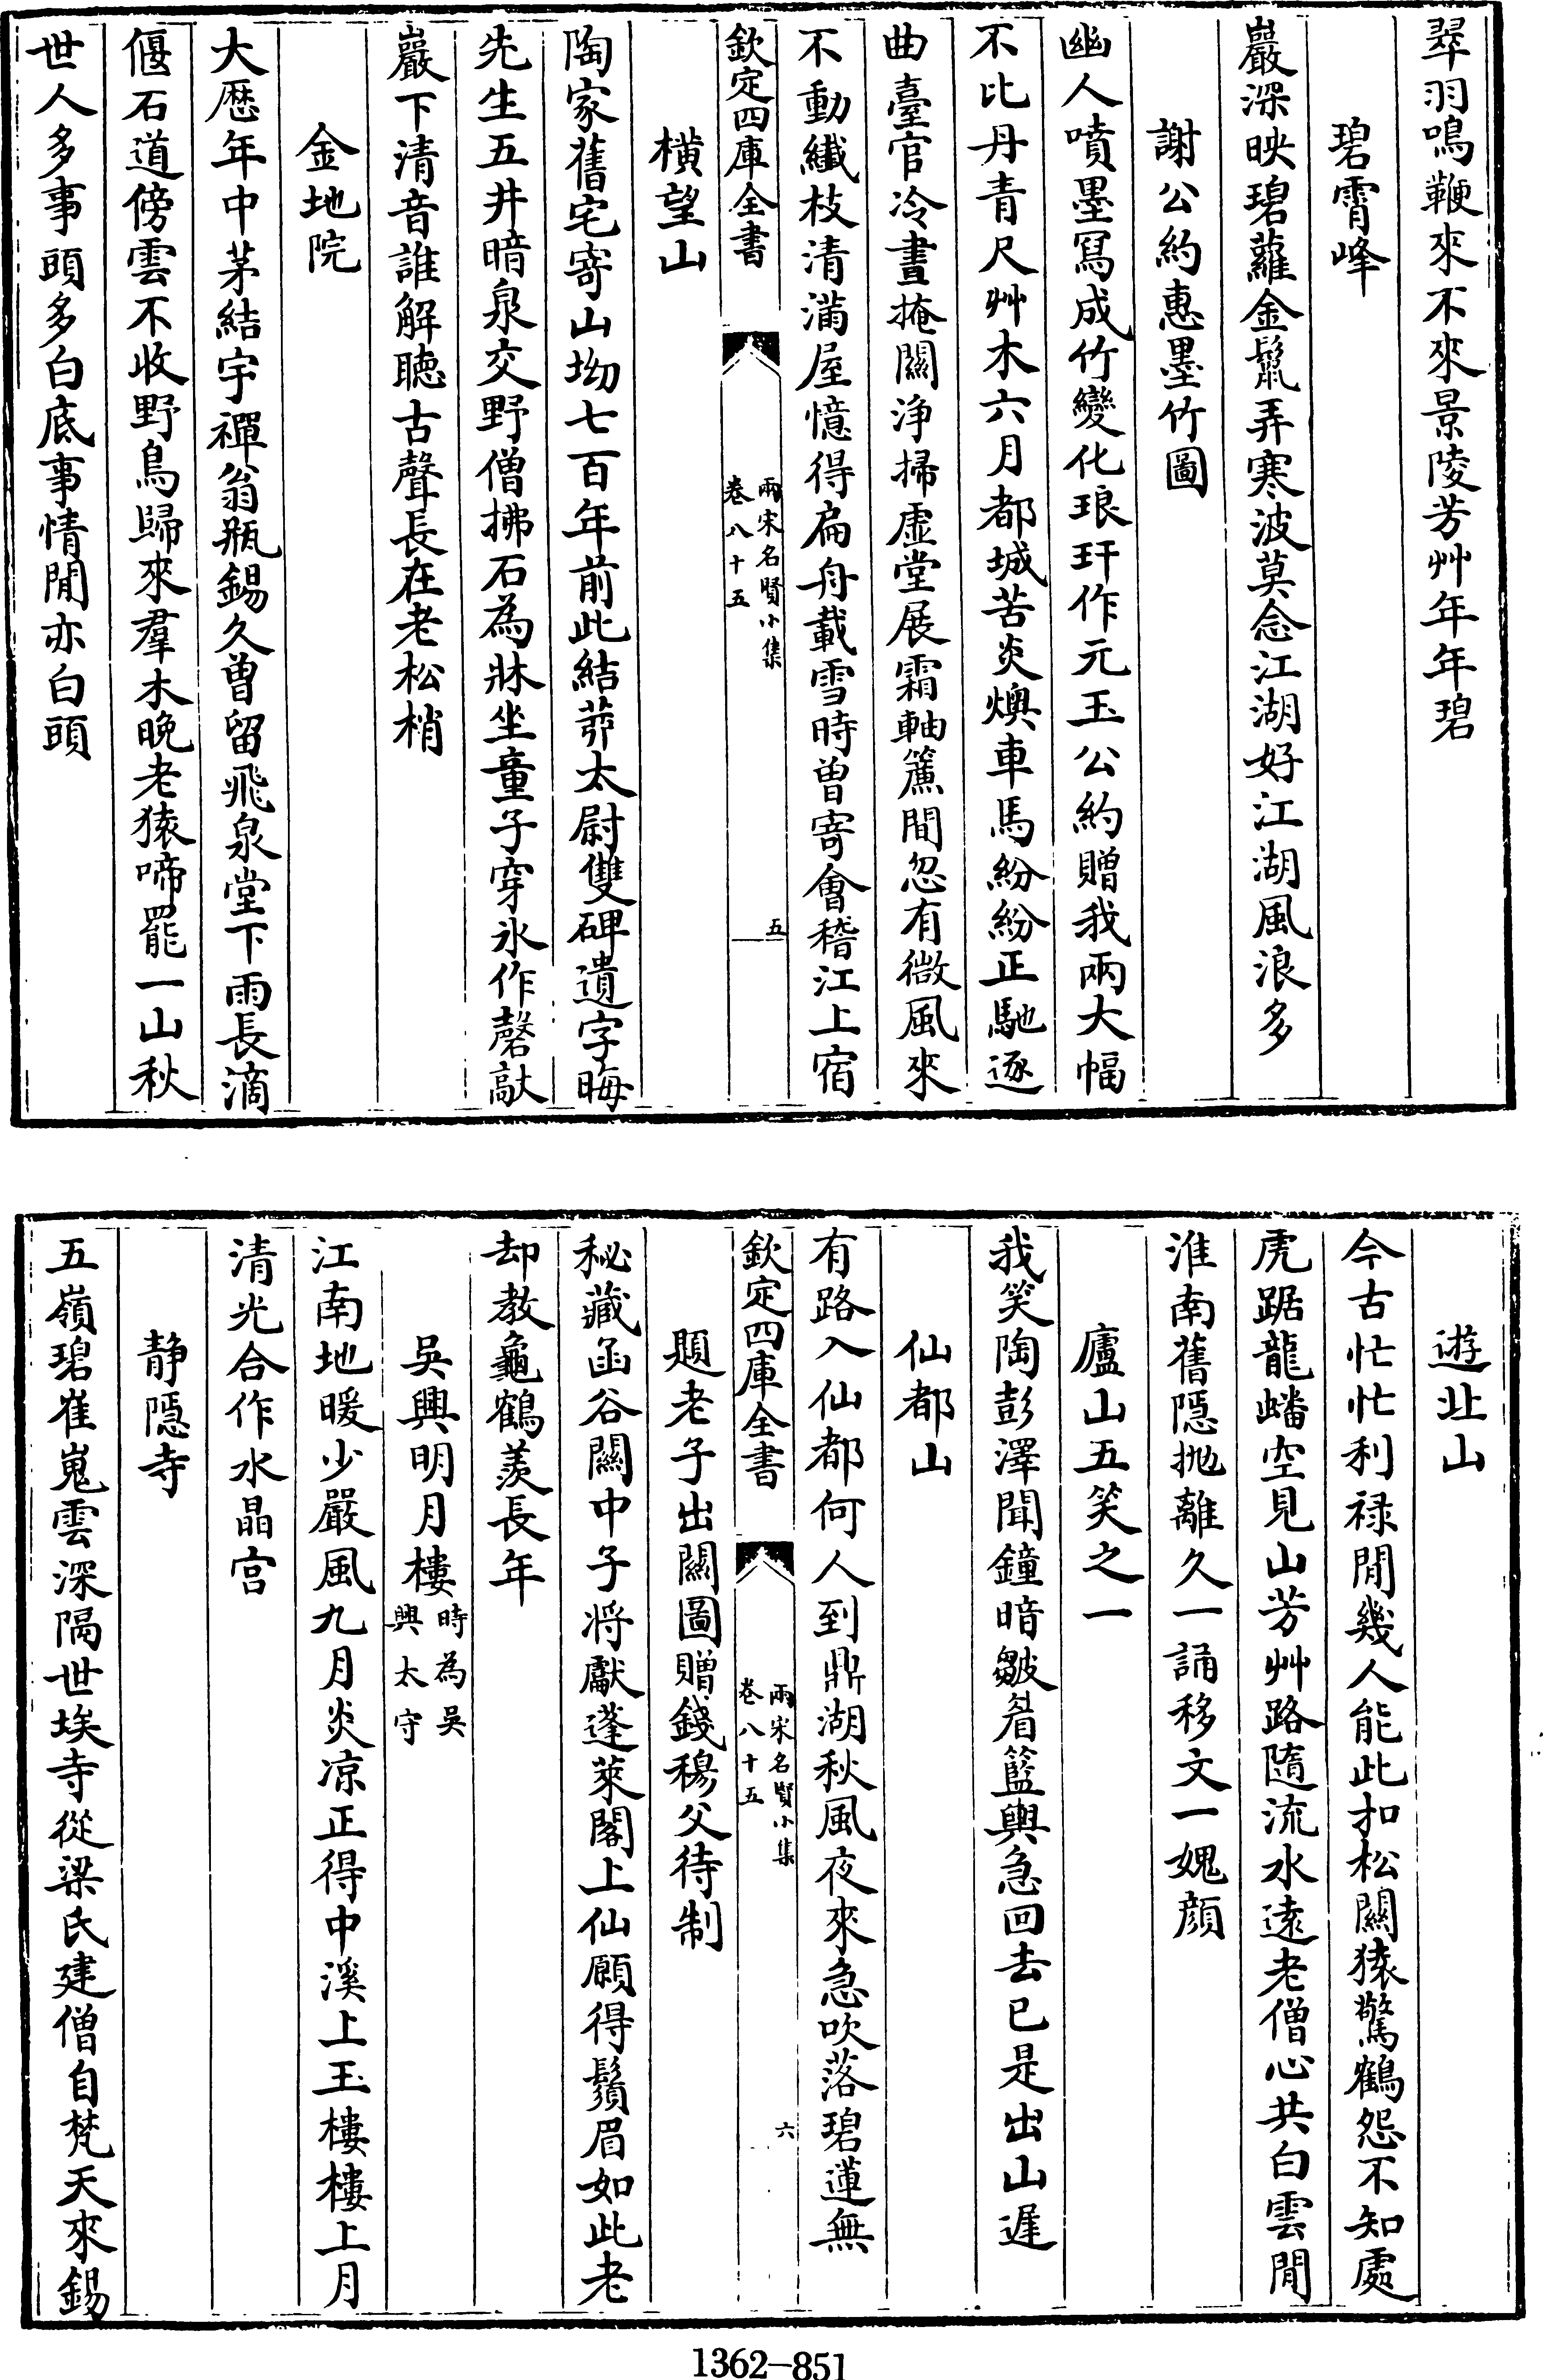 翠羽鳴鞭來不來景陵芳艸年年碧
碧霄峰
巖深映碧蘿金鬣弄寒波莫念江湖好江湖風浪多
謝公約惠墨竹圖
幽人噴墨寫成竹變化琅玕作元玉公約贈我兩大幅
不比丹青尺艸木六月都城苦炎燠車馬紛紛正馳逐
曲臺官冷晝掩關浄掃虛堂展霜軸簾間忽有微風來
不動纎枝清滿屋憶得扁舟載雪時曾寄會稽江上宿
欽定四庫全書
兩宋名賢小集
卷八十五
五
橫望山
陶家舊宅寄山坳七百年前此結茆太尉雙碑遺字晦
先生五井暗泉交野僧拂石為牀坐童子穿氷作磬敲
巖下清音誰解聽古聲長在老松梢
金地院
大厯年中茅結宇禪翁瓶錫久曽留飛泉堂下雨長滴
偃石道傍雲不收野鳥歸來羣木晚老猿啼罷一山秋
世人多事頭多白底事情閒亦白頭
遊北山
今古忙忙利禄閒幾人能此扣松關猿驚鶴怨不知處
虎踞龍蟠空見山芳艸路隨流水遠老僧心共白雲閒
淮南舊隠抛離久一誦移文一媿顔
廬山五笑之一
我笑陶彭澤聞鐘暗皺眉籃輿急回去已是出山遲
仙都山
有路入仙都何人到鼎湖秋風夜來急吹落碧蓮無
欽定四庫全書
兩宋名賢小集
卷八十五
六
題老子出關圖贈錢穆父待制
秘藏函谷關中子将獻蓬萊閣上仙願得鬚眉如此老
却教龜鶴羨長年
吳興明月樓時為吳興太守
江南地暖少嚴風九月炎凉正得中溪上玉樓樓上月
清光合作水晶宫
静隠寺
五嶺碧崔嵬雲深隔世埃寺從梁氏建僧自梵天來錫
1362-851